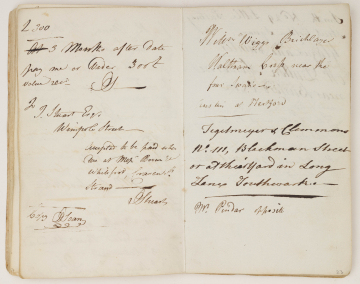 £ 300
3 Months after Date
pay me or order 300£
value recd.
To
J. Stuart Esqr.
Wimpole Street
accepted to be paid when
due at Messrs
Craven St
Strand
J Stuart
Wilson Wiggs Bricklayer
Waltham Cross near the
four Swallows
in Hertford
Tegetmeyer & Clemmons
No. 111, Blackman Street
or at their Yard in Long
Lane Southwark
Mr. Pindar opposite